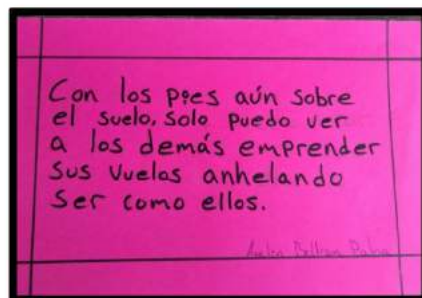 Con los pies aún sobre
el suelo, solo puedo ver
a los demás emprender
sus vuelos anhelando
ser como ellos.